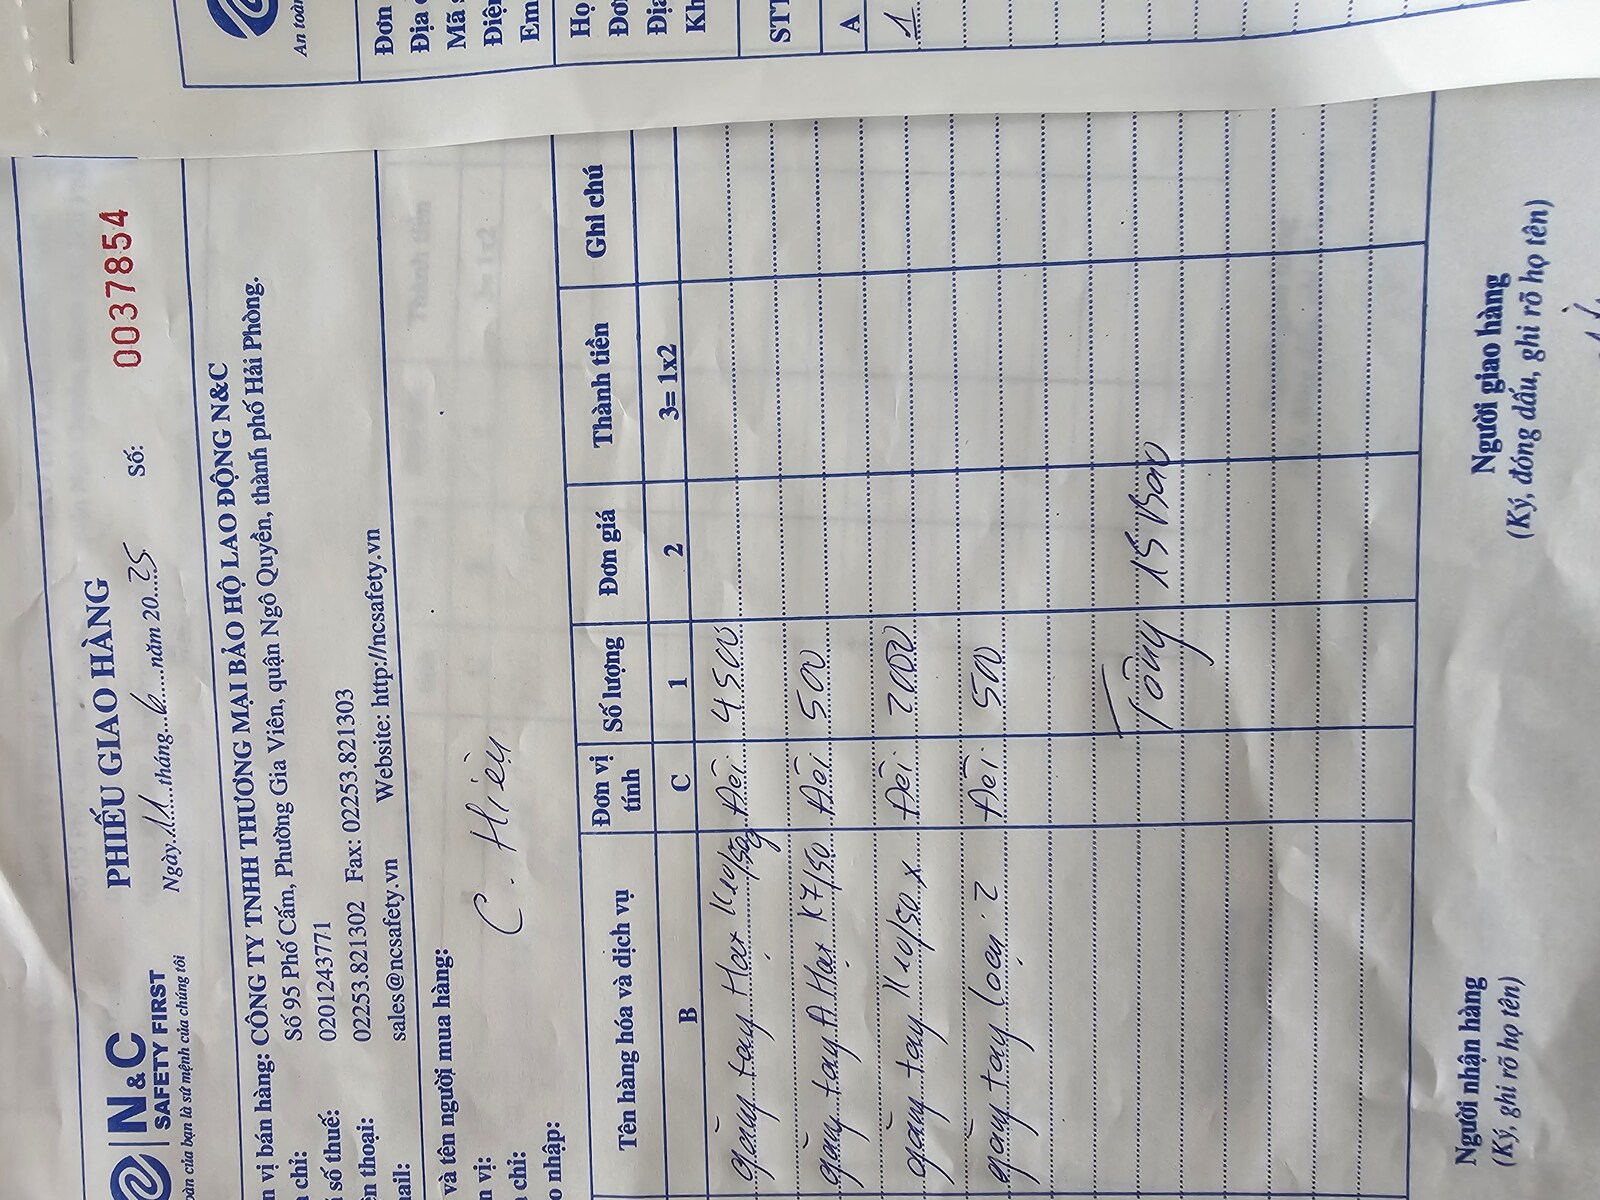 PHIẾU GIAO HÀNG
Ngày 11 tháng 6 năm 2025 Số: 0037854
N&C
SAFETY FIRST
toàn của bạn là sứ mệnh của chúng tôi
n vị bán hàng: CÔNG TY TNHH THƯƠNG MẠI BẢO HỘ LAO ĐỘNG N&C
chỉ: Số 95 Phố Cấm, Phường Gia Viên, quận Ngô Quyền, thành phố Hải Phòng.
số thuế: 0201243771
ện thoại: 02253.821302 Fax: 02253.821303
mail: sales@ncsafety.vn Website: http://ncsafety.vn
và tên người mua hàng: C. Hiền
n vị:
chỉ:
o nhập:
Tên hàng hóa và dịch vụ Đơn vị tính Số lượng Đơn giá Thành tiền Ghi chú
B C 1 2 3= 1x2
găng tay Hạt K10/50g Đôi 4500
găng tay A Hạt K7/50 Đôi 500
găng tay K10/50 x Đôi 2000
găng tay loại 2 Đôi 500
Tổng 15 Bao
Người nhận hàng Người giao hàng
(Ký, ghi rõ họ tên) (Ký, đóng dấu, ghi rõ họ tên)
An toàn
Đơn
Địa
Mã s
Điện
Em
Họ
Đơ
Địa
Kh
STT
A
1